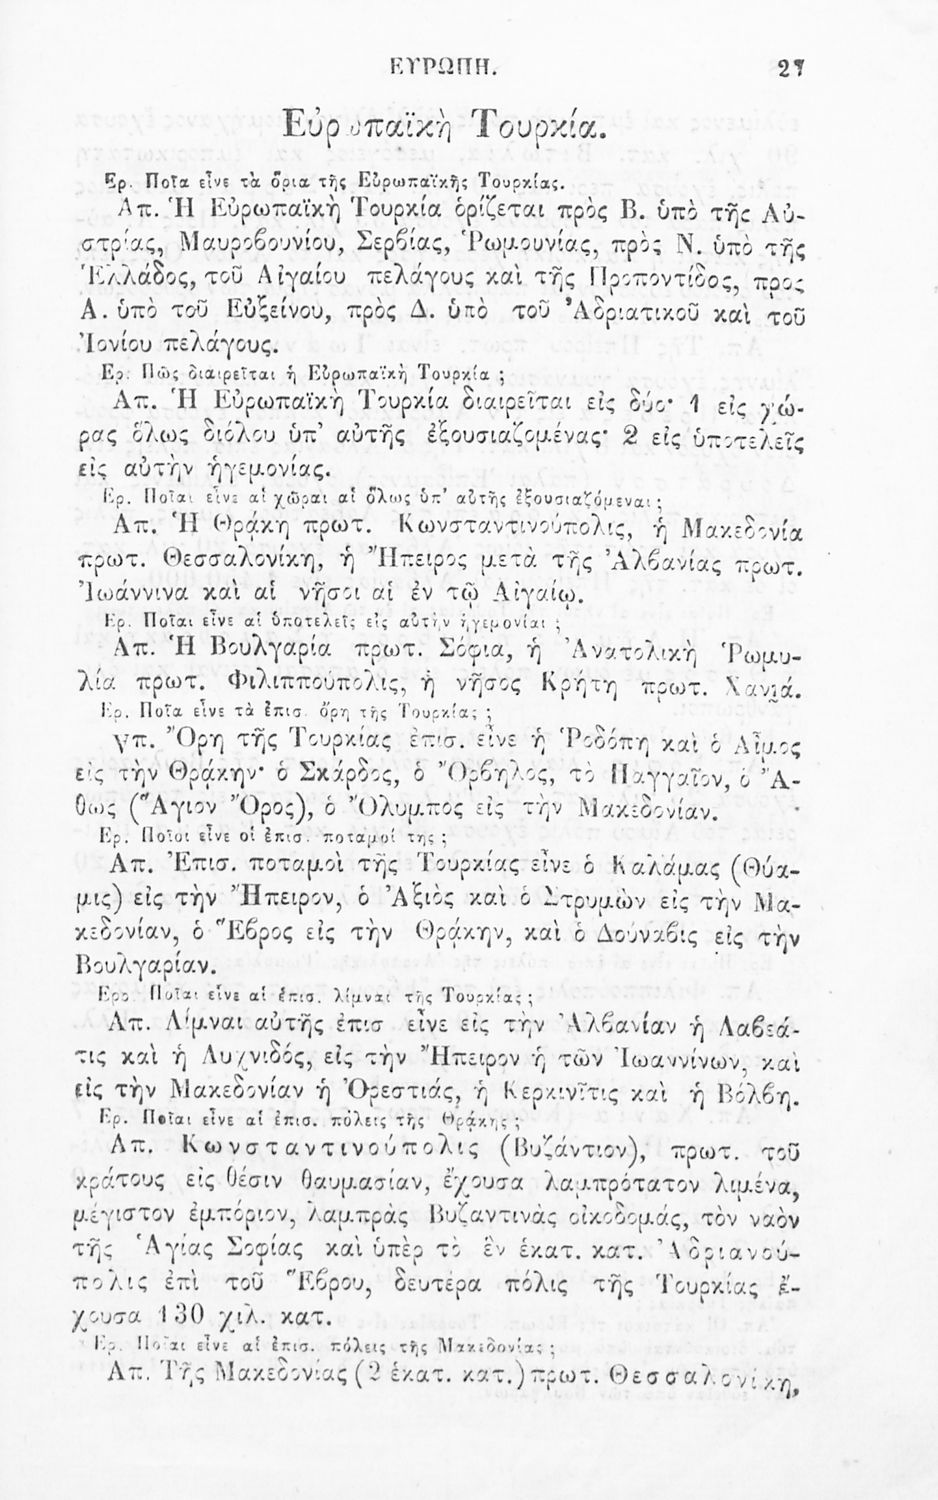 ΕΥΡΩΠΗ. 27
Εὐρωπαϊκὴ Τουρκία.
Ἐρ. Ποῖα εἶνε τὰ ὅρια τῆς Εὐρωπαϊκῆς Τουρκίας.
Απ. Ἡ Εὐρωπαϊκὴ Τουρκία ὁρίζεται πρὸς Β. ὑπὸ τῆς Αὐ-
στρίας, Μαυροβουνίου, Σερβίας, Ῥωμουνίας, πρὸς Ν. ὑπὸ τῆς
Ἑλλάδος, τοῦ Αἰγαίου πελάγους καὶ τῆς Προποντίδος, προς
Α. ὑπὸ τοῦ Εὐξείνου, πρὸς Δ. ὑπὸ τοῦ Ἀδριατικοῦ καὶ τοῦ
Ἰονίου πελάγους.
Ερ. Πῶς διαιρεῖται ἡ Εὐρωπαϊκὴ Τουρκία ;
Απ. Ἡ Εὐρωπαϊκὴ Τουρκία διαιρεῖται εἰς δύο· 1 εἰς χώ-
ρας ὅλως διόλου ὑπ' αὐτῆς ἐξουσιαζομένας· 2 εἰς ὑποτελεῖς
εἰς αὐτὴν ἡγεμονίας.
Ερ. Ποῖαι εἶνε αἱ χῶραι αἱ ὅλως ὑπ' αὐτῆς ἐξουσιαζόμεναι ;
Απ. Ἡ Θράκη πρωτ. Κωνσταντινούπολις, ἡ Μακεδονία
πρωτ. Θεσσαλονίκη, ἡ Ἤπειρος μετὰ τῆς Ἀλβανίας πρωτ.
Ἰωάννινα καὶ αἱ νῆσοι αἱ ἐν τῷ Αἰγαίῳ.
Ερ. Ποῖαι εἶνε αἱ ὑποτελεῖς εἰς αὐτὴν ἡγεμονίαι ;
Απ. Ἡ Βουλγαρία πρωτ. Σόφια, ἡ Ἀνατολικὴ Ῥωμυ-
λία πρωτ. Φιλιππούπολις, ἡ νῆσος Κρήτη πρωτ. Χανιά.
Ερ. Ποῖα εἶνε τὰ ἐπισ. ὄρη τῆς Τουρκίας ;
Απ. Ὄρη τῆς Τουρκίας ἐπισ. εἶνε ἡ Ῥοδόπη καὶ ὁ Αἷμος
εἰς τὴν Θράκην· ὁ Σκάρδος, ὁ Ὄρβηλος, τὸ Παγγαῖον, ὁ Ἄ-
θως (Ἅγιον Ὄρος), ὁ Ὄλυμπος εἰς τὴν Μακεδονίαν.
Ερ. Ποῖοι εἶνε οἱ ἐπισ. ποταμοί της ;
Απ. Ἐπισ. ποταμοὶ τῆς Τουρκίας εἶνε ὁ Καλάμας (Θύα-
μις) εἰς τὴν Ἤπειρον, ὁ Ἀξιὸς καὶ ὁ Στρυμὼν εἰς τὴν Μα-
κεδονίαν, ὁ Ἕβρος εἰς τὴν Θράκην, καὶ ὁ Δούναβις εἰς τὴν
Βουλγαρίαν.
Ερ. Ποῖαι εἶνε αἱ ἐπισ. λίμναι τῆς Τουρκίας ;
Απ. Λίμναι αὐτῆς ἐπισ εἶνε εἰς τὴν Ἀλβανίαν ἡ Λαβεά-
τις καὶ ἡ Λυχνιδός, εἰς τὴν Ἤπειρον ἡ τῶν Ἰωαννίνων, καὶ
εἰς τὴν Μακεδονίαν ἡ Ὀρεστιάς, ἡ Κερκινῖτις καὶ ἡ Βόλβη.
Ερ. Ποῖαι εἶνε αἱ ἐπισ. πόλεις τῆς Θράκης ;
Απ. Κωνσταντινούπολις (Βυζάντιον), πρωτ. τοῦ
κράτους εἰς θέσιν θαυμασίαν, ἔχουσα λαμπρότατον λιμένα,
μέγιστον ἐμπόριον, λαμπρὰς Βυζαντινὰς οἰκοδομάς, τὸν ναὸν
τῆς Ἁγίας Σοφίας καὶ ὑπὲρ τὸ ἓν ἑκατ. κατ. Ἀδριανού-
πολις ἐπὶ τοῦ Ἕβρου, δευτέρα πόλις τῆς Τουρκίας ἔ-
χουσα 130 χιλ. κατ.
Ερ. Ποῖαι εἶνε αἱ ἐπισ. πόλεις τῆς Μακεδονίας ;
Απ. Τῆς Μακεδονίας (2 ἑκατ. κατ.) πρωτ. Θεσσαλονίκη,